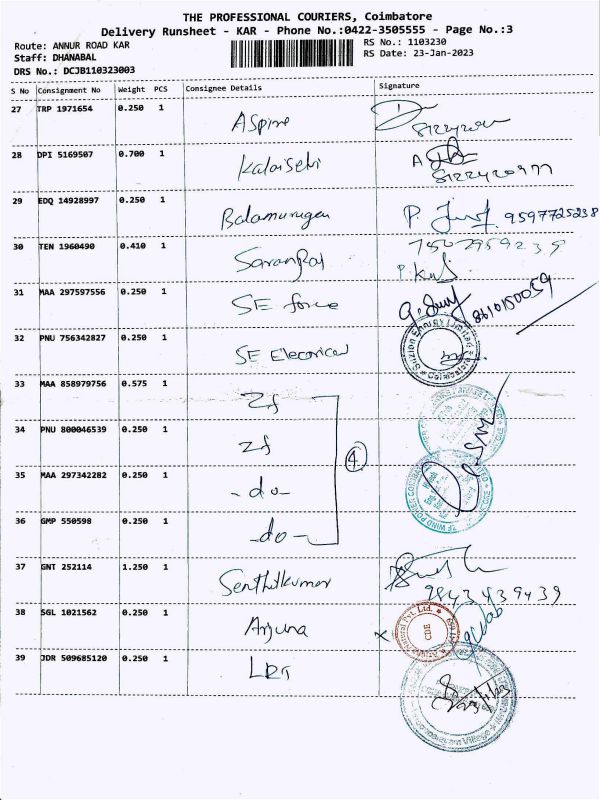 THE PROFESSIONAL COURIERS, Coimbatore
Delivery Runsheet - KAR - Phone No.:0422-3505555 - Page No.:3
Route: ANNUR ROAD KAR
RS No.: 1103230
Staff: DHANABAL
RS Date: 23-Jan-2023
DRS No.: DCJB110323003
S No Consignment No Weight PCS Consignee Details Signature
27 TRP 1971654 0.250 1 Aspire
28 DPI 5169507 0.700 1 Kalaiselvi
29 EDQ 14928997 0.250 1 Balamurugan 9597725238
30 TEN 1960490 0.410 1 SaranRaj
31 MAA 297597556 0.250 1 SE force 8610150059
32 PNU 756342827 0.250 1 SE Electrical Suzlon Energy Limited Coimbatore
33 MAA 858979756 0.575 1 Zf
34 PNU 800046539 0.250 1 Zf
4
35 MAA 297342282 0.250 1 -do-
36 GMP 550598 0.250 1 -do-
37 GNT 252114 1.250 1 Senthilkumar 9843439439
38 SGL 1021562 0.250 1 Arjuna x CDE
39 JDR 509685120 0.250 1 LRT